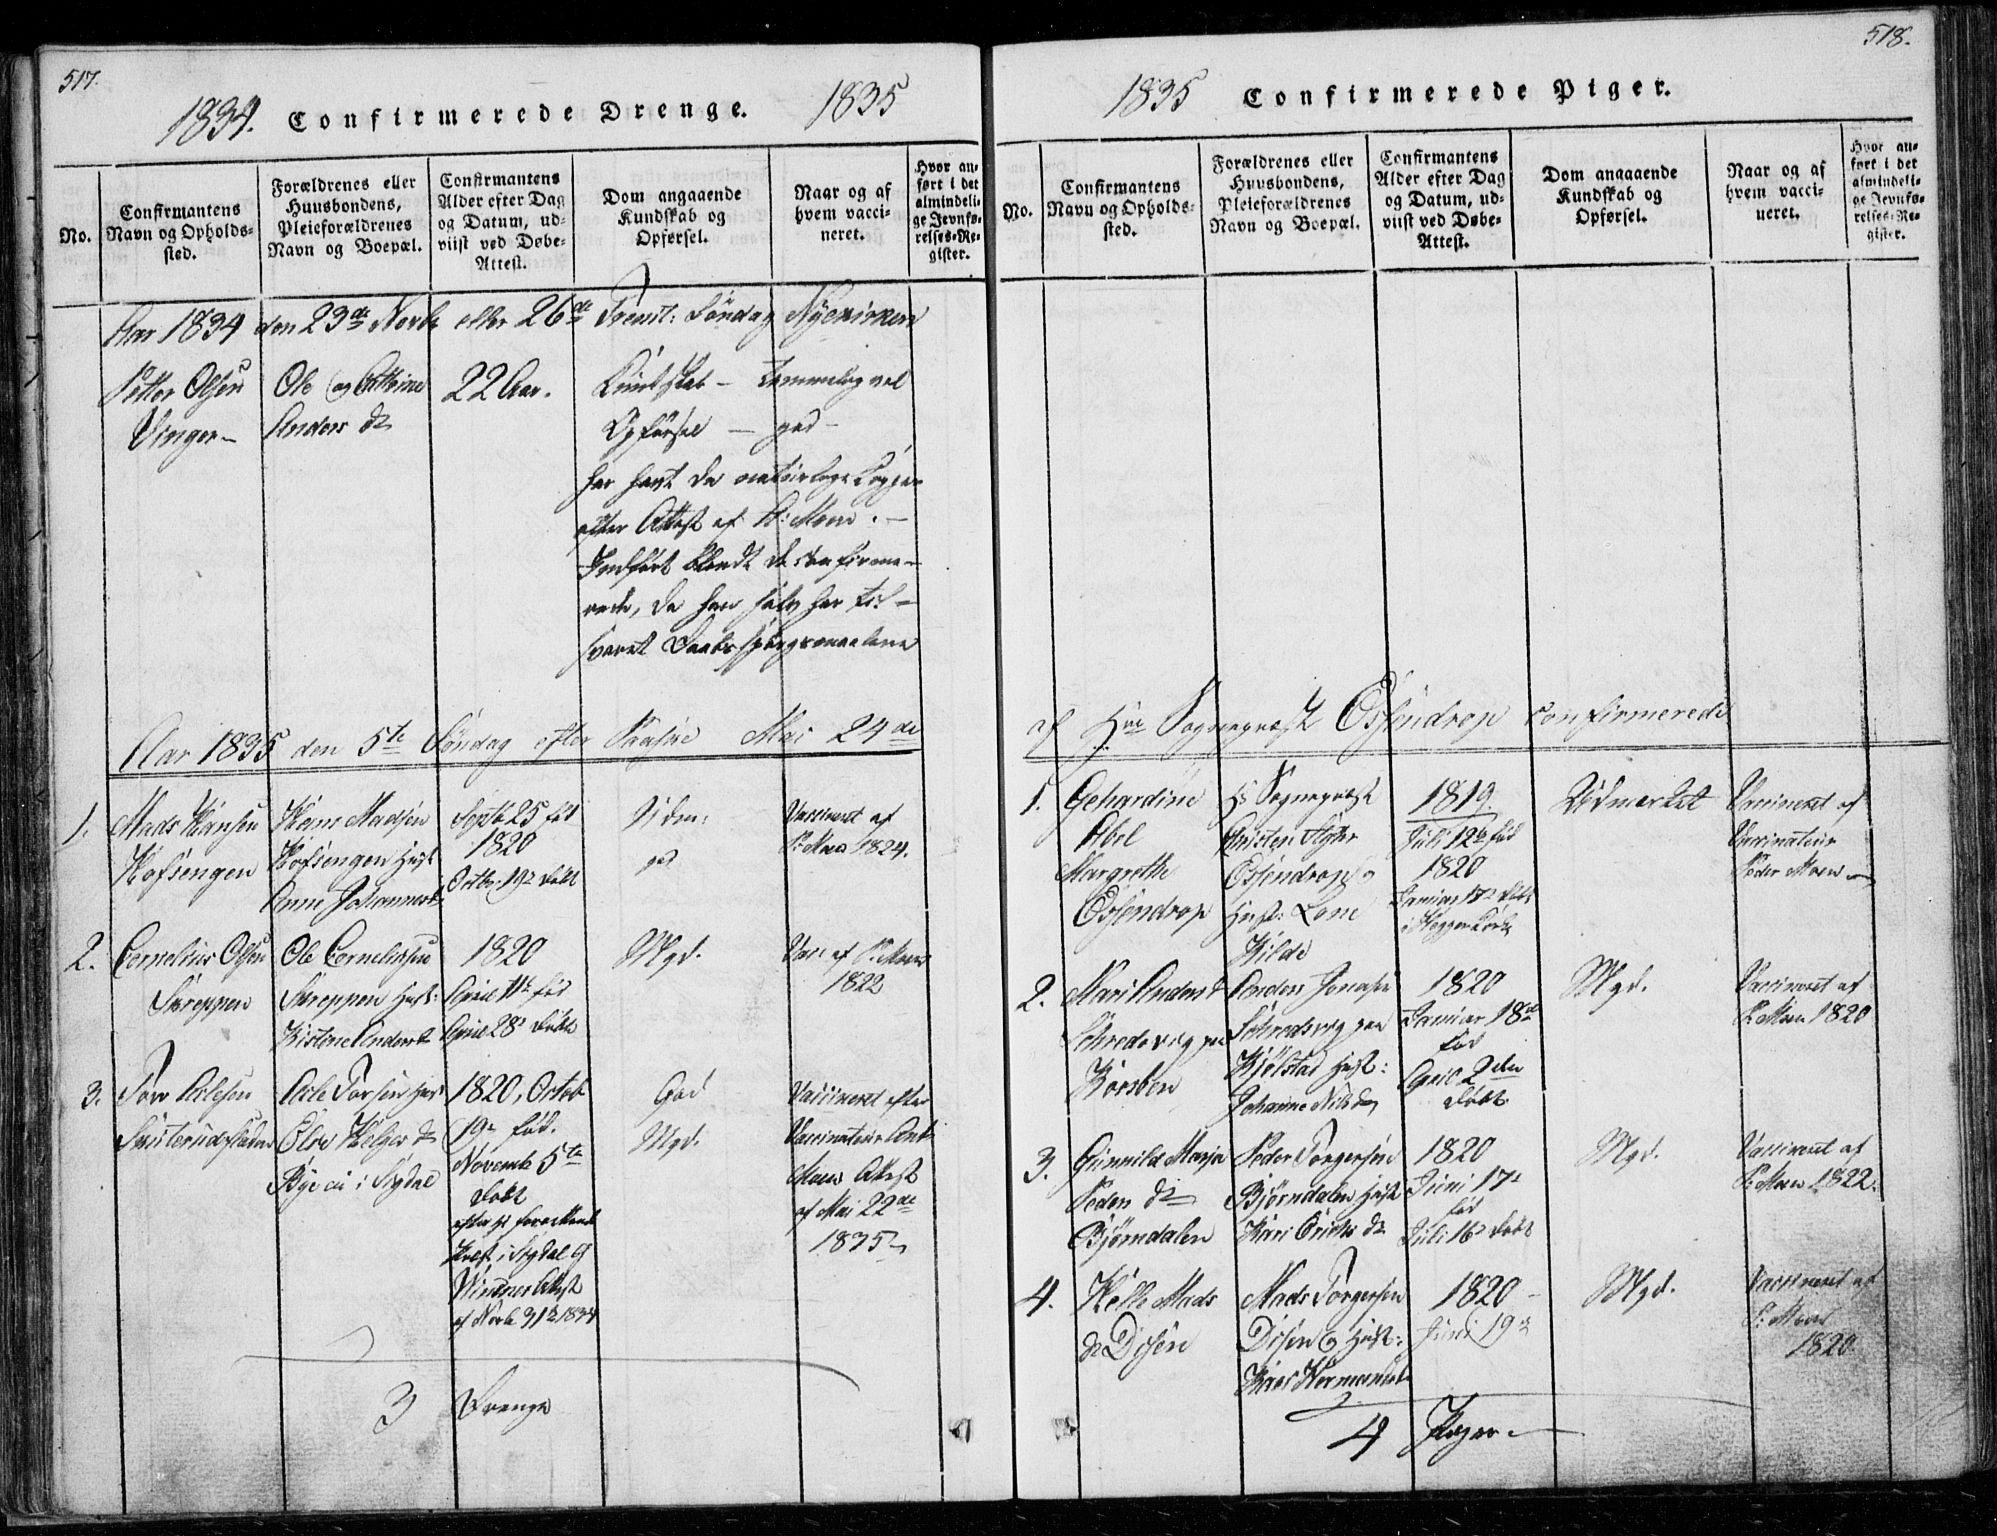 517.
1834. Confirmerede Drenge. 1835
No.
Confirmantens
Navn og Opholds-
sted.
Forældrenes eller
Huusbondens,
Pleieforældrenes
Navn og Boepæl.
Confirmantens
Alder efter Dag
og Datum, ud-
viist ved Døbe-
Attest.
Dom angaaende
Kundskab og
Opførsel.
Naar og af
hvem vacci-
neret.
Hvor an-
ført i det
almindeli-
ge Jevnfø-
relses-Re-
gister.
Aar 1834 den 23de Novbr eller 26de Søndag
Petter Olsen
Vinger
Ole og Cathrine
Anders dr
22 Aar.
Kundskab – temmelig vel
Opførsel – god –
har havt de naturlige Kopper
efter Attest af P: Moen. –
Indført blandt de confirme-
rede, da han selv har til-
svaret Daabsspørgsmaalene
Aar 1835 den 5te Søndag efter Paaske Mai 24de
1.
Mads Hansen
Hofsengen
Hans Madsen
Hofsengen Hust
Anne Johannesd
Septb 25 fød
1820
Octbr. 19de døbt
god
Vaccineret af
P. Moen 1824.
2.
Cornelius Olsen
Skreppen
Ole Corneliussen
Skreppen Hust:
Kistine Andersd
1820
April 11te fød
April 28de døbt
Mgd.
Vacc: af P. Moen
1822
3.
Tore Aslesen
Asle Torsen Hust
Helges dr
Bye i Sigdal
1820, Octob
19de fød.
Novemb 5te
døbt
i Sigdal
Attest
God
Mgd.
Vaccineret efter
Vaccinateur
Moens Attest
af Mai 22de
1835
3 Drenge
518.
1835 Confirmerede Piger.
No.
Confirmantens
Navn og Opholds-
sted.
Forældrenes eller
Huusbondens,
Pleieforældrenes
Navn og Boepæl.
Confirmantens
Alder efter Dag
og Datum, ud-
viist ved Døbe-
Attest.
Dom angaaende
Kundskab og
Opførsel.
Naar og af
hvem vacci-
neret.
Hvor an-
ført i det
almindeli-
ge Jevnfø-
relses-Re-
gister.
af Hr Sognepræst Össendrop confirmerede
1.
Gehardine
Abel
Margrethe
Össendrop
Hr Sognepræst
Christen
Össendrop &
Hust: Lene
Kilde
1819.
Juli 12te fød
1820
Januar 17de døbt
Udmærket
Vaccineret af
Vaccinateur
Peder Moen
2.
Mari Anders d
Schredsvig paa
Anders Jonasen
Schredsvig paa
Kjølstad Hust:
Johanne Nils d
1820
Januar 18de
fød
April 2den
døbt.
Mgd.
Vaccineret af
P. Moen 1820
3.
Gunnild Marja
Peders dr
Bjørndalen
Peder Torgersen
Bjørndalen Hust
Kari Erichs dr
1820
Juni 17de
fød
Juli 16de døbt
Mgd.
Vaccineret af
P. Moen 1822.
4.
Helle Mads
dr Disen
Mads Torgersen
Disen & Hust:
1820 –
Juni 19de
Mgd.
Vaccineret af
P: Moen
1820
4 Piger